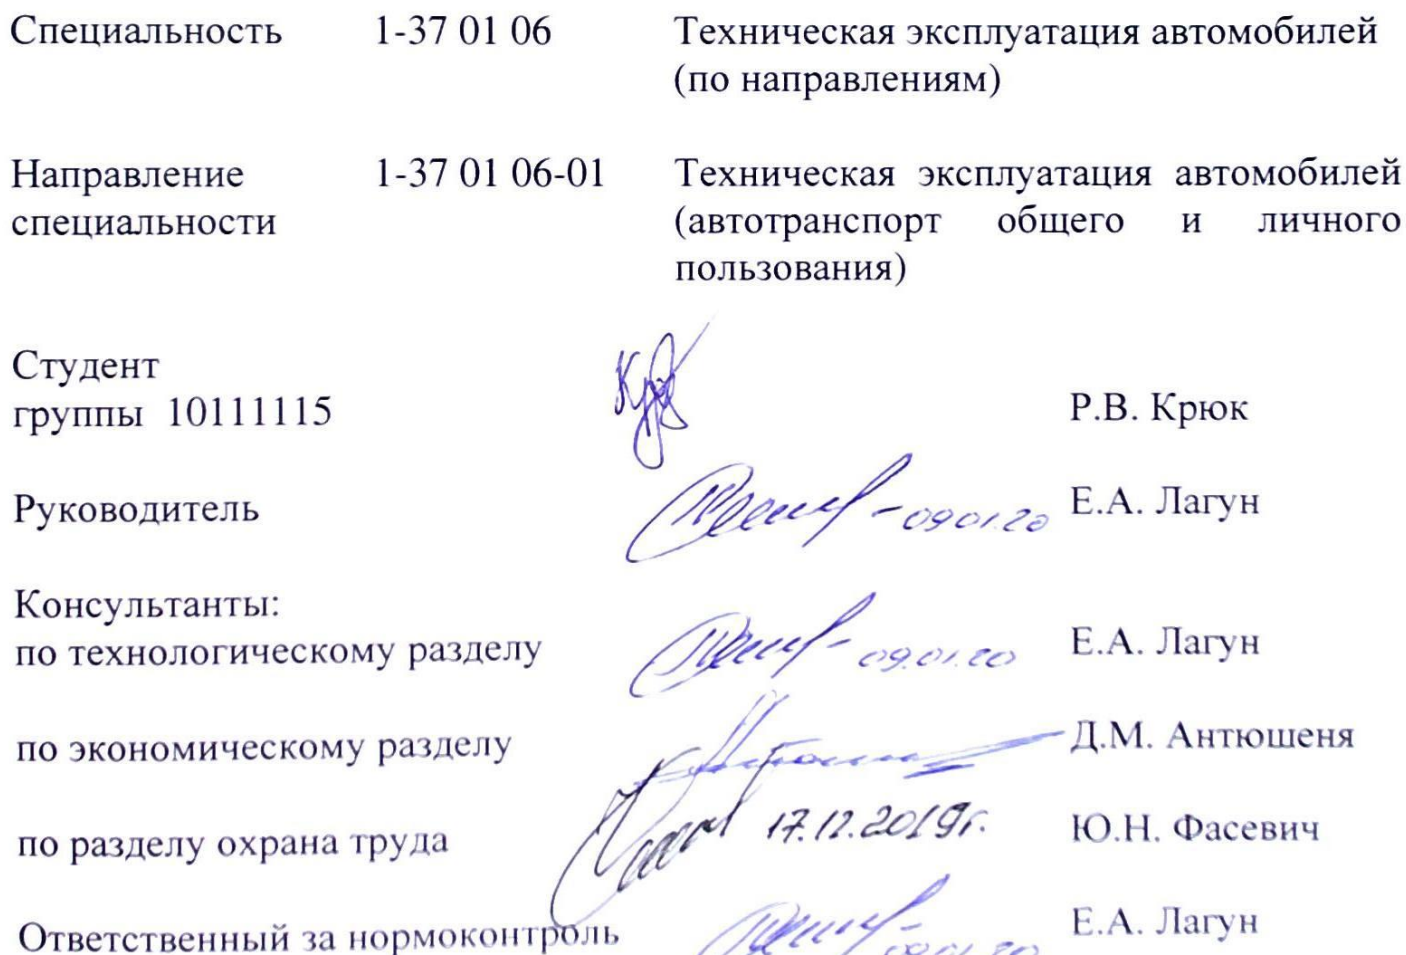 Специальность 1-37 01 06 Техническая эксплуатация автомобилей
(по направлениям)
Направление 1-37 01 06-01 Техническая эксплуатация автомобилей
специальности (автотранспорт общего и личного
пользования)
Студент
группы 10111115 Р.В. Крюк
Руководитель 09.01.20 Е.А. Лагун
Консультанты:
по технологическому разделу 09.01.20 Е.А. Лагун
по экономическому разделу Д.М. Антюшеня
по разделу охрана труда 17.12.2019г. Ю.Н. Фасевич
Ответственный за нормоконтроль Е.А. Лагун